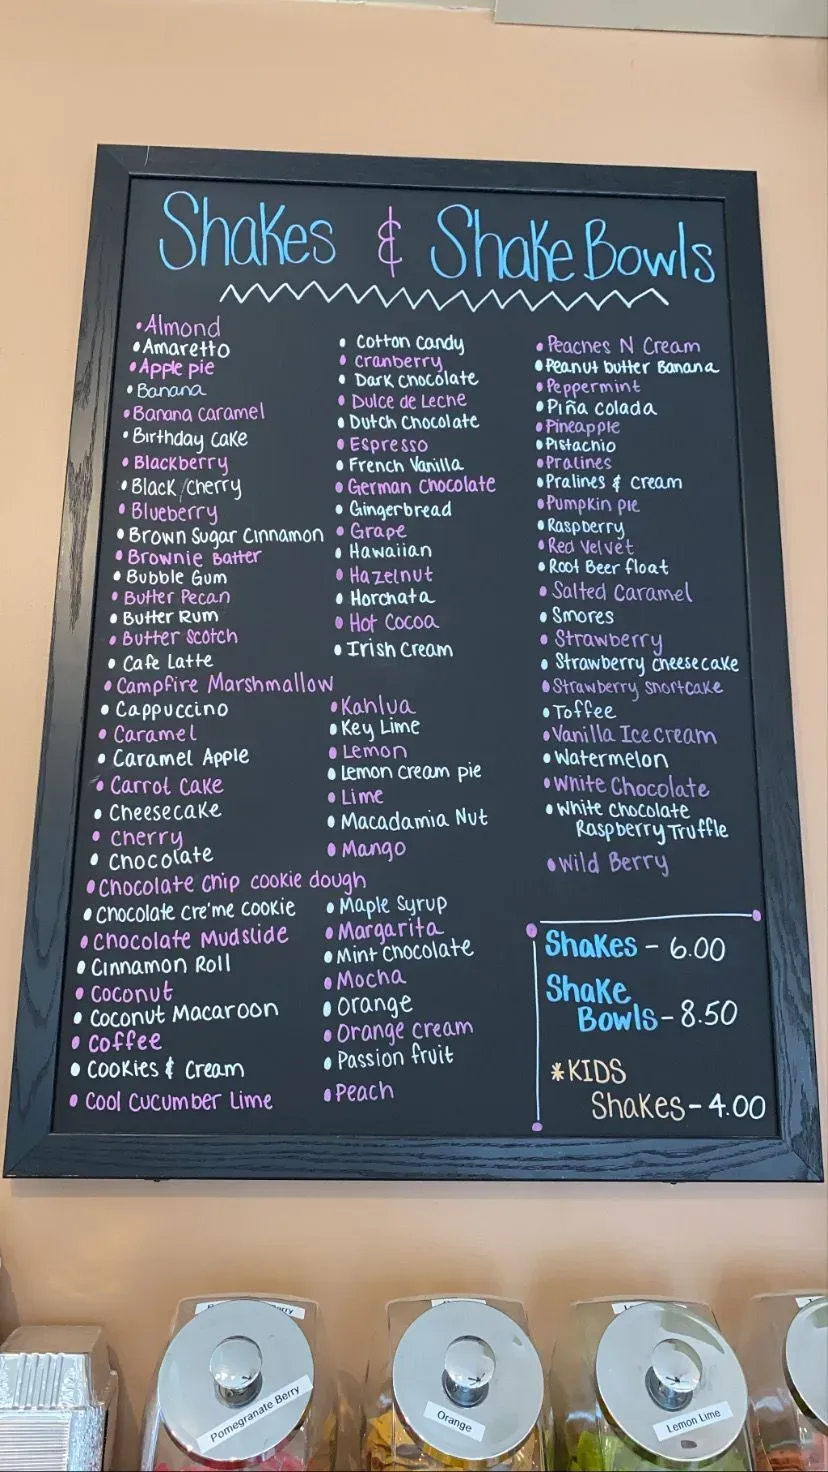 Shakes & Shake Bowls
• Almond
• Amaretto
• Apple pie
• Banana
• Banana caramel
• Birthday cake
• Blackberry
• Black/cherry
• Blueberry
• Brown Sugar Cinnamon
• Brownie Batter
• Bubble Gum
• Butter Pecan
• Butter Rum
• Butter Scotch
• Cafe Latte
• Campfire Marshmallow
• Cappuccino
• Caramel
• Caramel Apple
• Carrot Cake
• Cheesecake
• Cherry
• Chocolate
• Chocolate chip cookie dough
• Chocolate cre'me cookie
• Chocolate Mudslide
• Cinnamon Roll
• Coconut
• Coconut Macaroon
• Coffee
• Cookies & Cream
• Cool Cucumber Lime
• Cotton Candy
• Cranberry
• Dark Chocolate
• Dulce de Leche
• Dutch Chocolate
• Espresso
• French Vanilla
• German Chocolate
• Gingerbread
• Grape
• Hawaiian
• Hazelnut
• Horchata
• Hot Cocoa
• Irish Cream
• Kahlua
• Key Lime
• Lemon
• Lemon cream pie
• Lime
• Macadamia Nut
• Mango
• Maple Syrup
• Margarita
• Mint Chocolate
• Mocha
• Orange
• Orange cream
• Passion fruit
• Peach
• Peaches N Cream
• Peanut butter Banana
• Peppermint
• Piña colada
• Pineapple
• Pistachio
• Pralines
• Pralines & cream
• Pumpkin pie
• Raspberry
• Red Velvet
• Root Beer float
• Salted Caramel
• Smores
• Strawberry
• Strawberry cheesecake
• Strawberry shortcake
• Toffee
• Vanilla Ice cream
• Watermelon
• White Chocolate
• White Chocolate
Raspberry Truffle
• Wild Berry
Shakes - 6.00
Shake
Bowls - 8.50
*KIDS
Shakes - 4.00
Pomegranate Berry
Orange
Lemon Lime